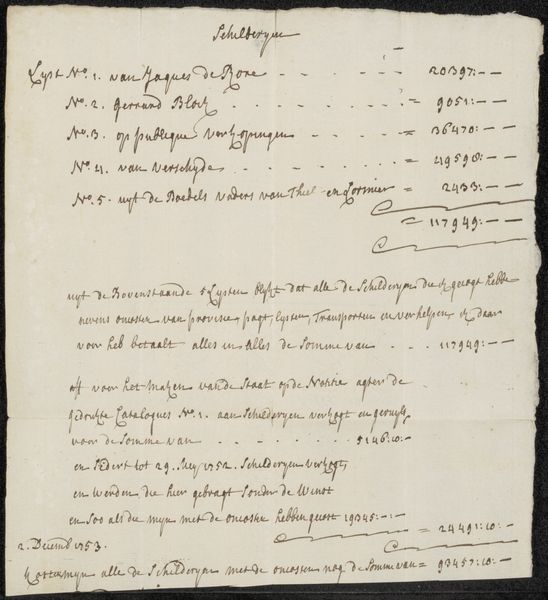 Schilderyen
Lyst No. 1. van Jaques de Rore - - - - - 20397:--
No. 2. Gerrard Block . . . . . . = 9051:--
No. 3. op publique verkopingen - - - - = 36470:--
No. 4. van verschyde - - . . . . = 49598:--
No. 5. uyt de Boedels vaders van Thiel en Lormier = 2433:--
= 117949:--
uyt de Bovenstaande 5 Lysten blykt dat alle de Schilderyen die ik gecogt hebbe
nevens oncosten van provisie, pagt, lysten, Transporten en verhelpen, ik daar
voor heb betaalt alles in alles de Somme van . . . 117949:--
off voor het maken van de Staat op de Notitie agter de
gedrukte Catalogus No. 1. aan Schilderyen verkogt en geruylt
voor de Somme van . . . . . . . 5146:10:-
en Sedert tot 29. July 1752. Schilderyen verkogt,
en werden die hier gebragt Sonder de Winst
en Soo als die myn met de oncosten hebben gecost 19345:--
= 24491:10:-
2. Decemb 1753.
kosten myn alle de Schilderyen met de oncosten nog de Somme van = 93457:10:-